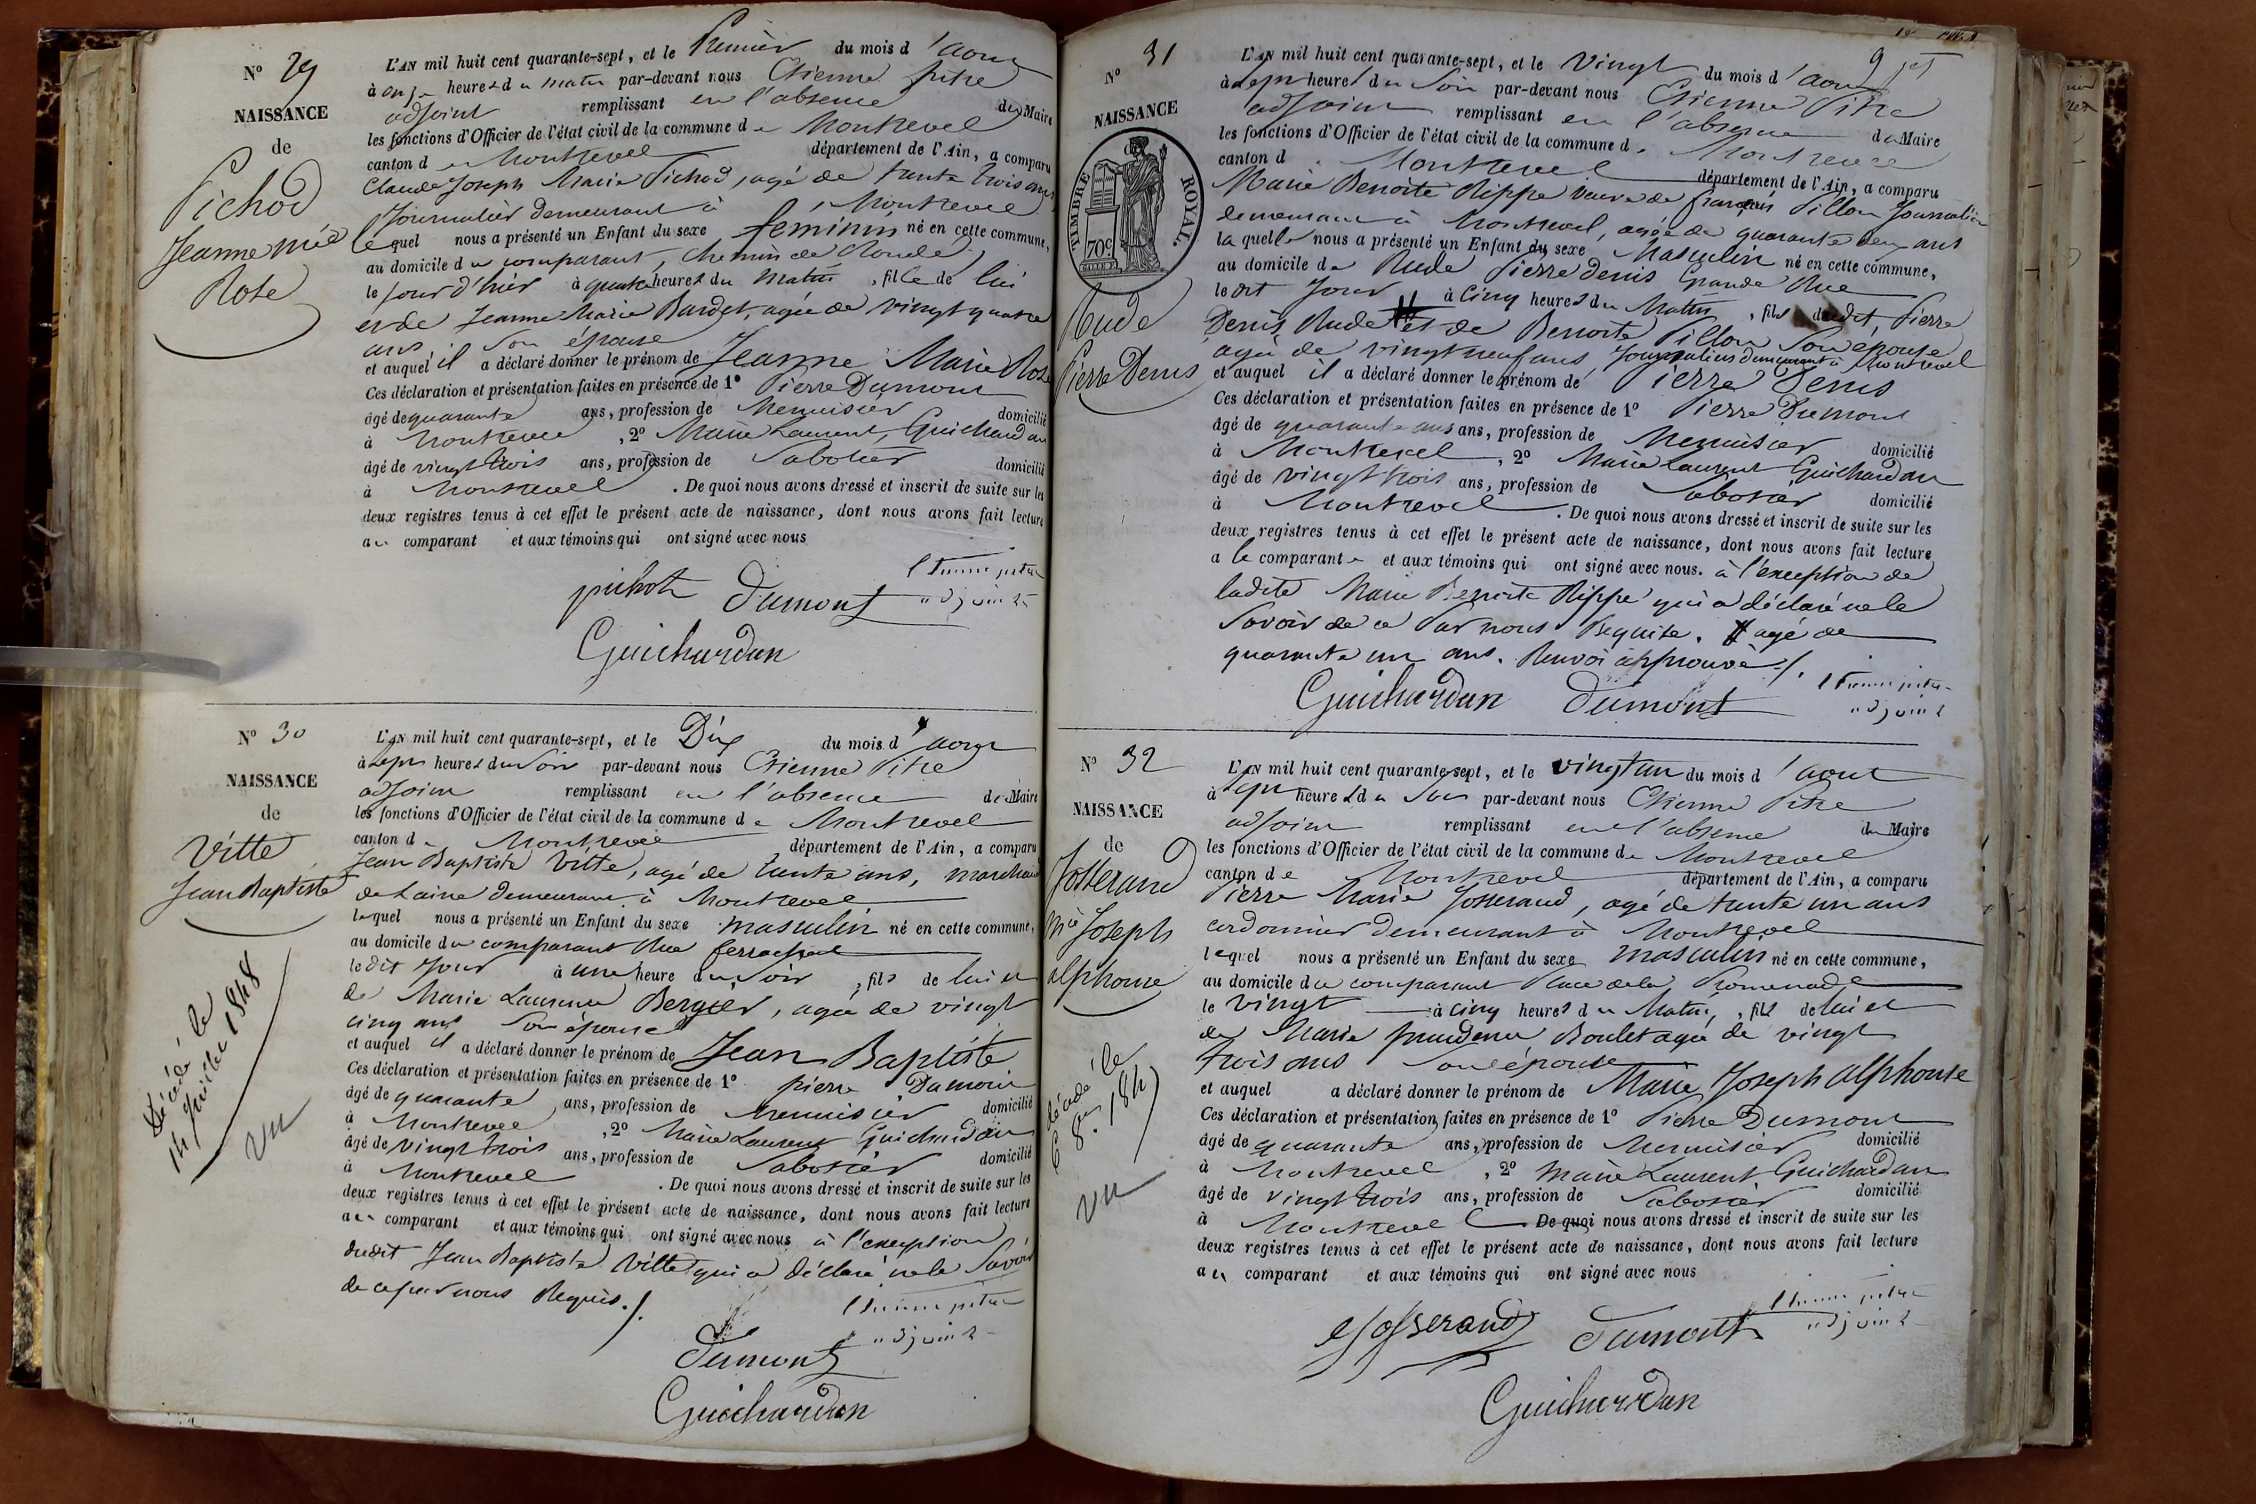 N° 29
NAISSANCE
de
Pichod
Jeanne Mie
Rose
L'AN mil huit cent quarante-sept, et le Premier du mois d'aout
à onze heures du matin par-devant nous Etienne Pitre
adjoint remplissant en l'absence du Maire
les fonctions d'Officier de l'état civil de la commune de Montrevel
canton de Montrevel département de l'Ain, a comparu
Claude Joseph Marie Pichod, agé de trente trois ans
Journalier demeurant à Montrevel
lequel nous a présenté un Enfant du sexe féminin né en cette commune,
au domicile du comparant, chemin de Ronde,
le jour d'hier à quatre heures du matin, fille de lui
et de Jeanne Marie Bardet, agée de vingt quatre
ans son épouse
et auquel il a déclaré donner le prénom de Jeanne Marie Rose
Ces déclaration et présentation faites en présence de 1° Pierre Dumont
âgé de quarante ans, profession de Menuisier domicilié
à Montrevel, 2° Marie Laurent Guichardan
âgé de vingt trois ans, profession de Sabotier domicilié
à Montrevel. De quoi nous avons dressé et inscrit de suite sur les
deux registres tenus à cet effet le présent acte de naissance, dont nous avons fait lecture
au comparant et aux témoins qui ont signé avec nous
pichot Dumont Etienne pitre
adjoint
Guichardan
N° 30
NAISSANCE
de
Vitte
Jean Baptiste
Décédé le
14 Juillet 1848
vu
L'AN mil huit cent quarante-sept, et le Dix du mois d'aout
à sept heures du soir par-devant nous Etienne Pitre
adjoint remplissant en l'absence du Maire
les fonctions d'Officier de l'état civil de la commune de Montrevel
canton de Montrevel département de l'Ain, a comparu
Jean Baptiste Vitte, agé de trente ans, marchand
de Laine demeurant à Montrevel
lequel nous a présenté un Enfant du sexe masculin né en cette commune,
au domicile du comparant Rue
ledit Jour à une heure du soir, fils de lui et
de Marie Laurence Bergier, agée de vingt
cinq ans son épouse
et auquel il a déclaré donner le prénom de Jean Baptiste
Ces déclaration et présentation faites en présence de 1° pierre Dumont
âgé de quarante ans, profession de Menuisier domicilié
à Montrevel, 2° Marie Laurent Guichardan
âgé de vingt trois ans, profession de Sabotier domicilié
à Montrevel. De quoi nous avons dressé et inscrit de suite sur les
deux registres tenus à cet effet le présent acte de naissance, dont nous avons fait lecture
au comparant et aux témoins qui ont signé avec nous à l'exception
dudit Jean Baptiste Vitte qui a déclaré ne le savoir
de ce par nous Requis./.
Etienne pitre
adjoint
Dumont
Guichardan
N° 31
NAISSANCE
TIMBRE ROYAL.
70c
Rude
Pierre Denis
L'AN mil huit cent quarante-sept, et le Vingt du mois d'aout
à sept heures du soir par-devant nous Etienne Pitre
adjoint remplissant en l'absence du Maire
les fonctions d'Officier de l'état civil de la commune de Montrevel
canton d Montrevel département de l'Ain, a comparu
Marie Benoite Rippe veuve de français Pillon Journalière
demeurant à Montrevel, agée de quarante deux ans
laquelle nous a présenté un Enfant du sexe Masculin né en cette commune,
au domicile de Rude Pierre Denis Grande Rue
ledit Jour à Cinq heures du Matin, fils dudit Pierre
Denis Rude # et de Benoite Pillon son épouse
agée de vingt neuf ans Journaliers demeurant à Montrevel
et auquel il a déclaré donner le prénom de Pierre Denis
Ces déclaration et présentation faites en présence de 1° Pierre Dumont
âgé de quarante ans ans, profession de Menuisier domicilié
à Montrevel, 2° Marie Laurent Guichardan
âgé de vingt trois ans, profession de Sabotier domicilié
à Montrevel. De quoi nous avons dressé et inscrit de suite sur les
deux registres tenus à cet effet le présent acte de naissance, dont nous avons fait lecture
a la comparante et aux témoins qui ont signé avec nous. à l'exception de
ladite Marie Benoite Rippe qui a déclaré ne le
savoir de ce par nous Requise. # agé de
quarante un ans. Renvoi approuvé./.
Guichardan Dumont Etienne pitre
adjoint
N° 32
NAISSANCE
de
Josserand
Mie Joseph
alphonse
décédé le
8. 1847
vu
L'AN mil huit cent quarante-sept, et le vingt un du mois d'aout
à sept heures du soir par-devant nous Etienne Pitre
adjoint remplissant en l'absence du Maire
les fonctions d'Officier de l'état civil de la commune de Montrevel
canton de Montrevel département de l'Ain, a comparu
Pierre Marie Josserand, agé de trente un ans
cordonnier demeurant à Montrevel
lequel nous a présenté un Enfant du sexe masculin né en cette commune,
au domicile du comparant Place de la Promenade
le vingt à cinq heures du Matin, fils de lui et
de Marie prudence Boulet agée de vingt
trois ans son épouse
et auquel a déclaré donner le prénom de Marie Joseph alphonse
Ces déclaration et présentation faites en présence de 1° Pierre Dumont
âgé de quarante ans, profession de Menuisier domicilié
à Montrevel, 2° Marie Laurent Guichardan
âgé de vingt trois ans, profession de Sabotier domicilié
à Montrevel De quoi nous avons dressé et inscrit de suite sur les
deux registres tenus à cet effet le présent acte de naissance, dont nous avons fait lecture
au comparant et aux témoins qui ont signé avec nous
Josserand Dumont Etienne pitre
adjoint
Guichardan